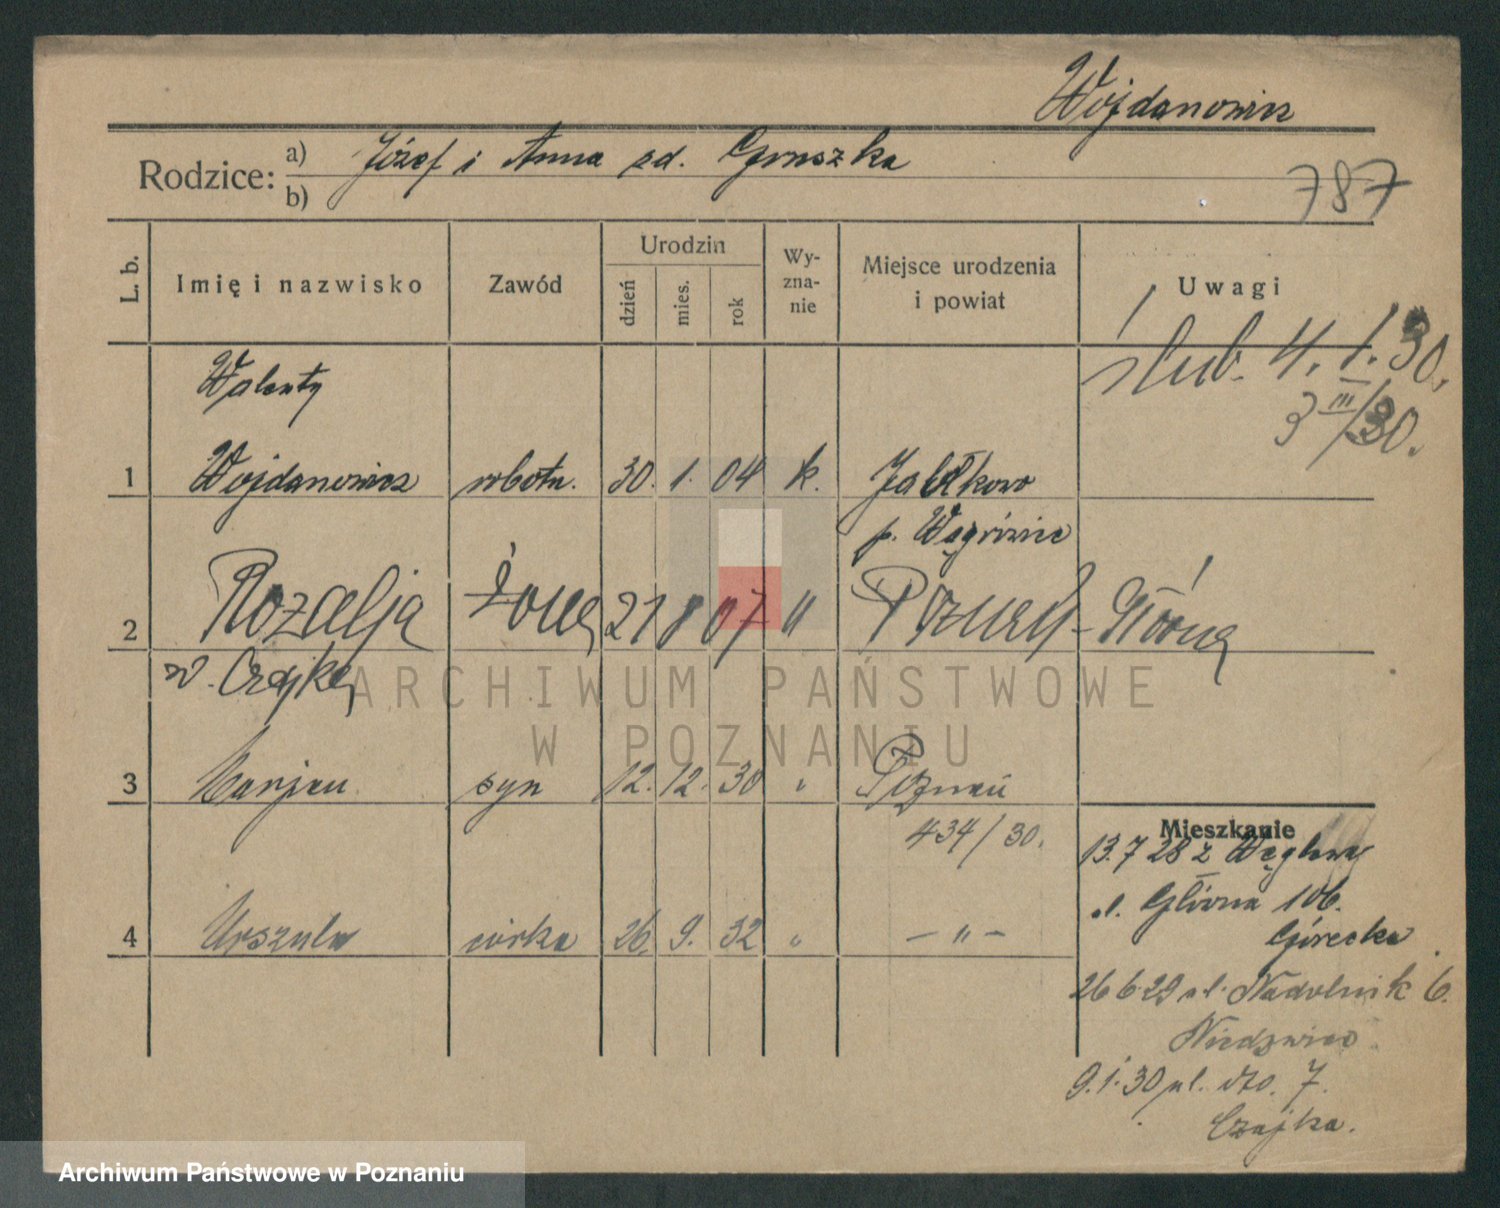 Wojdanowicz
Rodzice: a) Józef i Anna zd. Gruszka
b)
787
L. b. Imię i nazwisko Zawód Urodzin dzień mies. rok Wy-zna-nie Miejsce urodzenia i powiat Uwagi
ślub. 4. 1. 30.
3 III/30.
Walenty
1 Wojdanowicz robotn. 30. 1. 04 k. Jabłkowo
p. Wągrówiec
2 Rozalja żona 21 8 07 " Poznań-Główna
z d. Czajka
3 Marjan syn 12. 12. 30 " Poznań
434/30.
4 Urszula córka 26. 9. 32 " — " —
Mieszkanie
13.7 28 z
ul. Główna 106.
Górecka
26 6 29 ul. Nadolnik 6.
9.1.30 ul. dto. 7.
Czajka.
ARCHIWUM PAŃSTWOWE
W POZNANIU
Archiwum Państwowe w Poznaniu